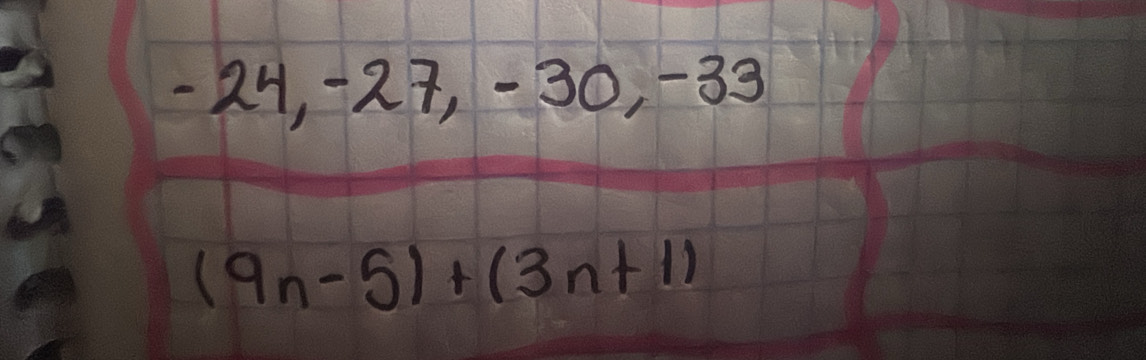 -24, -27, -30, -33
(9n-5)+(3n+1)